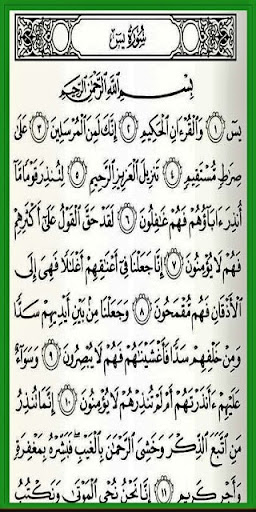 سُورَةُ يٓسٓ
بِسْمِ ٱللَّهِ ٱلرَّحْمَٰنِ ٱلرَّحِيمِ
يسٓ ١ وَٱلْقُرْءَانِ ٱلْحَكِيمِ ٢ إِنَّكَ لَمِنَ ٱلْمُرْسَلِينَ ٣ عَلَىٰ
صِرَٰطٍ مُّسْتَقِيمٍ ٤ تَنزِيلَ ٱلْعَزِيزِ ٱلرَّحِيمِ ٥ لِتُنذِرَ قَوْمًا مَّآ
أُنذِرَ ءَابَآؤُهُمْ فَهُمْ غَٰفِلُونَ ٦ لَقَدْ حَقَّ ٱلْقَوْلُ عَلَىٰٓ أَكْثَرِهِمْ
فَهُمْ لَا يُؤْمِنُونَ ٧ إِنَّا جَعَلْنَا فِىٓ أَعْنَٰقِهِمْ أَغْلَٰلًا فَهِىَ إِلَى
ٱلْأَذْقَانِ فَهُم مُّقْمَحُونَ ٨ وَجَعَلْنَا مِنۢ بَيْنِ أَيْدِيهِمْ سَدًّا
وَمِنْ خَلْفِهِمْ سَدًّا فَأَغْشَيْنَٰهُمْ فَهُمْ لَا يُبْصِرُونَ ٩ وَسَوَآءٌ
عَلَيْهِمْ ءَأَنذَرْتَهُمْ أَمْ لَمْ تُنذِرْهُمْ لَا يُؤْمِنُونَ ١٠ إِنَّمَا تُنذِرُ
مَنِ ٱتَّبَعَ ٱلذِّكْرَ وَخَشِىَ ٱلرَّحْمَٰنَ بِٱلْغَيْبِ ۖ فَبَشِّرْهُ بِمَغْفِرَةٍ
وَأَجْرٍ كَرِيمٍ ١١ إِنَّا نَحْنُ نُحْىِ ٱلْمَوْتَىٰ وَنَكْتُبُ